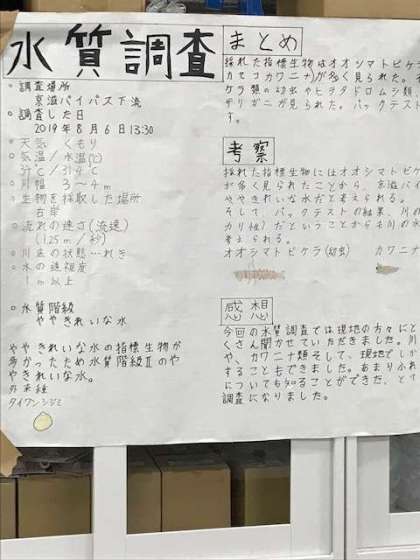 水質調査
・調査場所
京滋バイパス下流
・調査した日
2019年8月6日13:30
・天気 くもり
・気温/水温(℃)
・川幅 3~4m
・生物を採取した場所
右岸
・流れの速さ(流速)
(1.25m/秒)
・川底の状態…れき
・水の透視度
1m以上
・水質階級
ややきれいな水
ややきれいな水の指標生物が
多かったため水質階級Ⅱのや
やきれいな水。
外来種
タイワンシジミ
まとめ
採れた指標生物はオオシマトビケラ
カモコカワニナ)が多く見られた。
ケラ類の幼虫やヒラタドロムシ類
ザリガニが見られた。パックテス
す。
考察
採れた指標生物にはオオシマトビケ
が多く見られたことから、京滋バ
ややきれいな水だと考えられる。
そして、パックテストの結果、川の
カリ性)だということからも川の水
考えられる。
オオシマトビケラ(幼虫) カワニナ
感想
今回の水質調査では現地の方々にた
くさん聞かせていただきました。川
や、カワニナ類そして、現地でしか
することもできました。あまりふれ
についても知ることができた、とて
調査になりました。